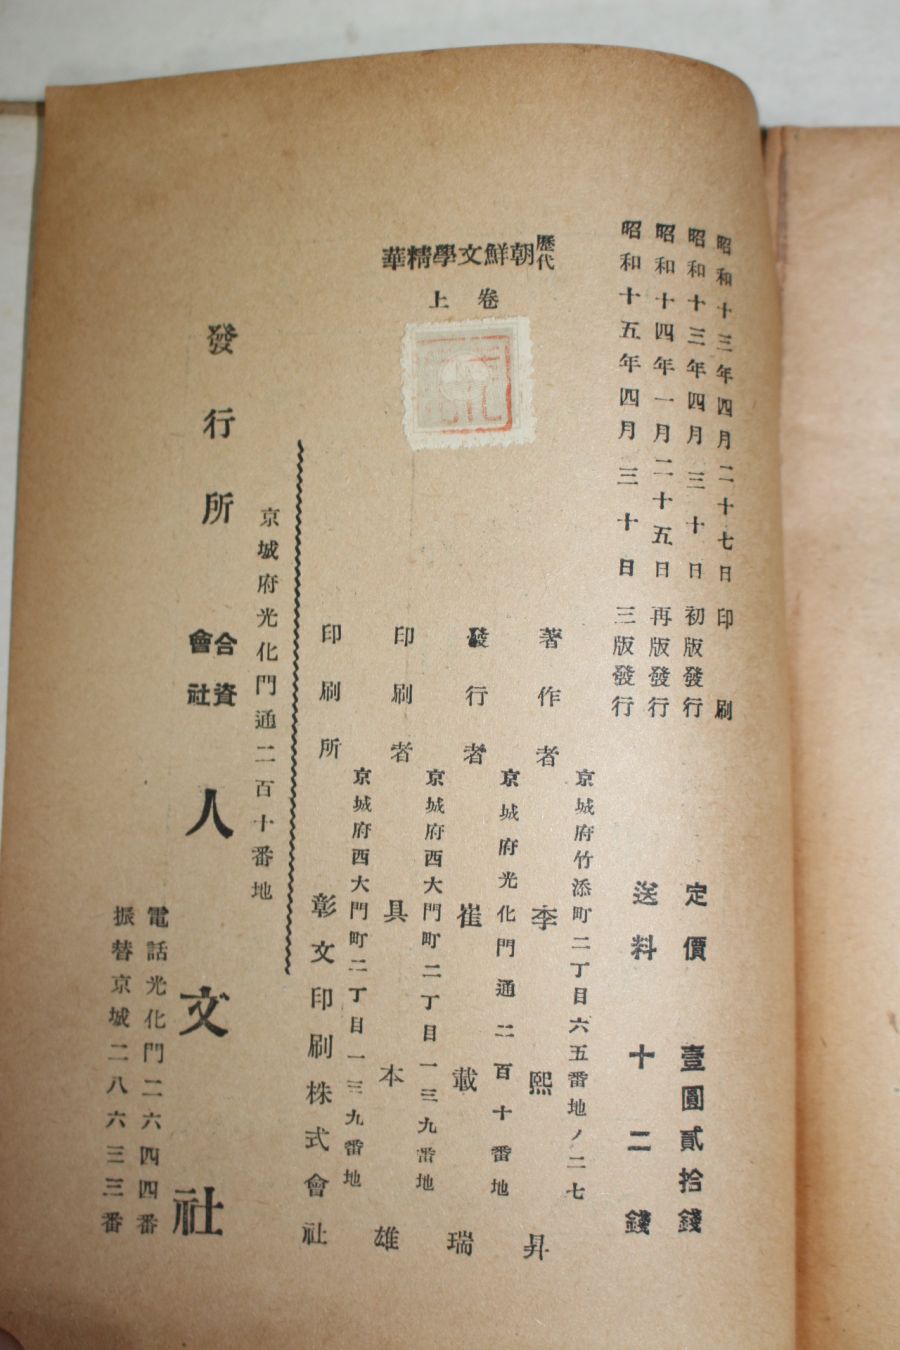 昭和十三年四月二十七日印刷
昭和十三年四月三十日初版發行
昭和十四年一月二十五日再版發行
昭和十五年四月三十日三版發行
定價壹圓貳拾錢
送料十二錢
歷代朝鮮文學精華
卷上
京城府竹添町二丁目六五番地ノ二七
著作者李熙昇
京城府光化門通二百十番地
發行者崔載瑞
京城府西大門町二丁目一三九番地
印刷者具本雄
京城府西大門町二丁目一三九番地
印刷所彰文印刷株式會社
京城府光化門通二百十番地
發行所合資會社人文社
電話光化門二六四四番
振替京城二八六三三番